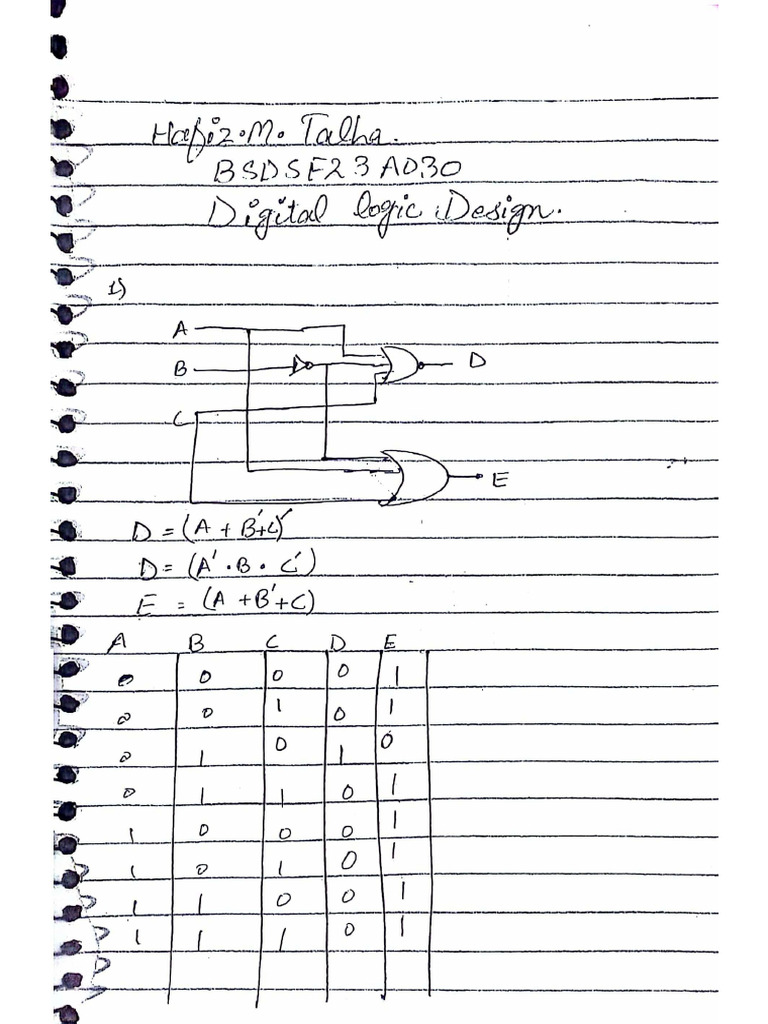 Hafiz.M. Talha.
BSDSF23A030
Digital logic Design.
1)
A
B
D
C
E
D = (A + B'+C)'
D = (A' . B . C')
E = (A + B' + C)
A B C D E
0 0 0 0 1
0 0 1 0 1
0 1 0 1 0
0 1 1 0 1
1 0 0 0 1
1 0 1 0 1
1 1 0 0 1
1 1 1 0 1